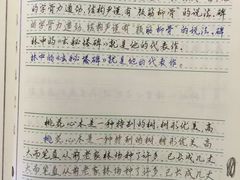 的字骨力遒劲,结构严谨有"颜筋柳骨"的说法,碑
的字骨力遒劲,结构严谨有"颜筋柳骨"的说法.碑
林中的《玄秘塔碑》就是他的代表作。
林中的《玄秘塔碑》就是他的代表作。
桃花心木是一种特别的树,树形优美,高
桃花心木是一种特别的树,树形优美,高
大而笔直从前老家林场种了许多,已长成几丈
大而笔直从前老家林场种了许多,已长成几丈